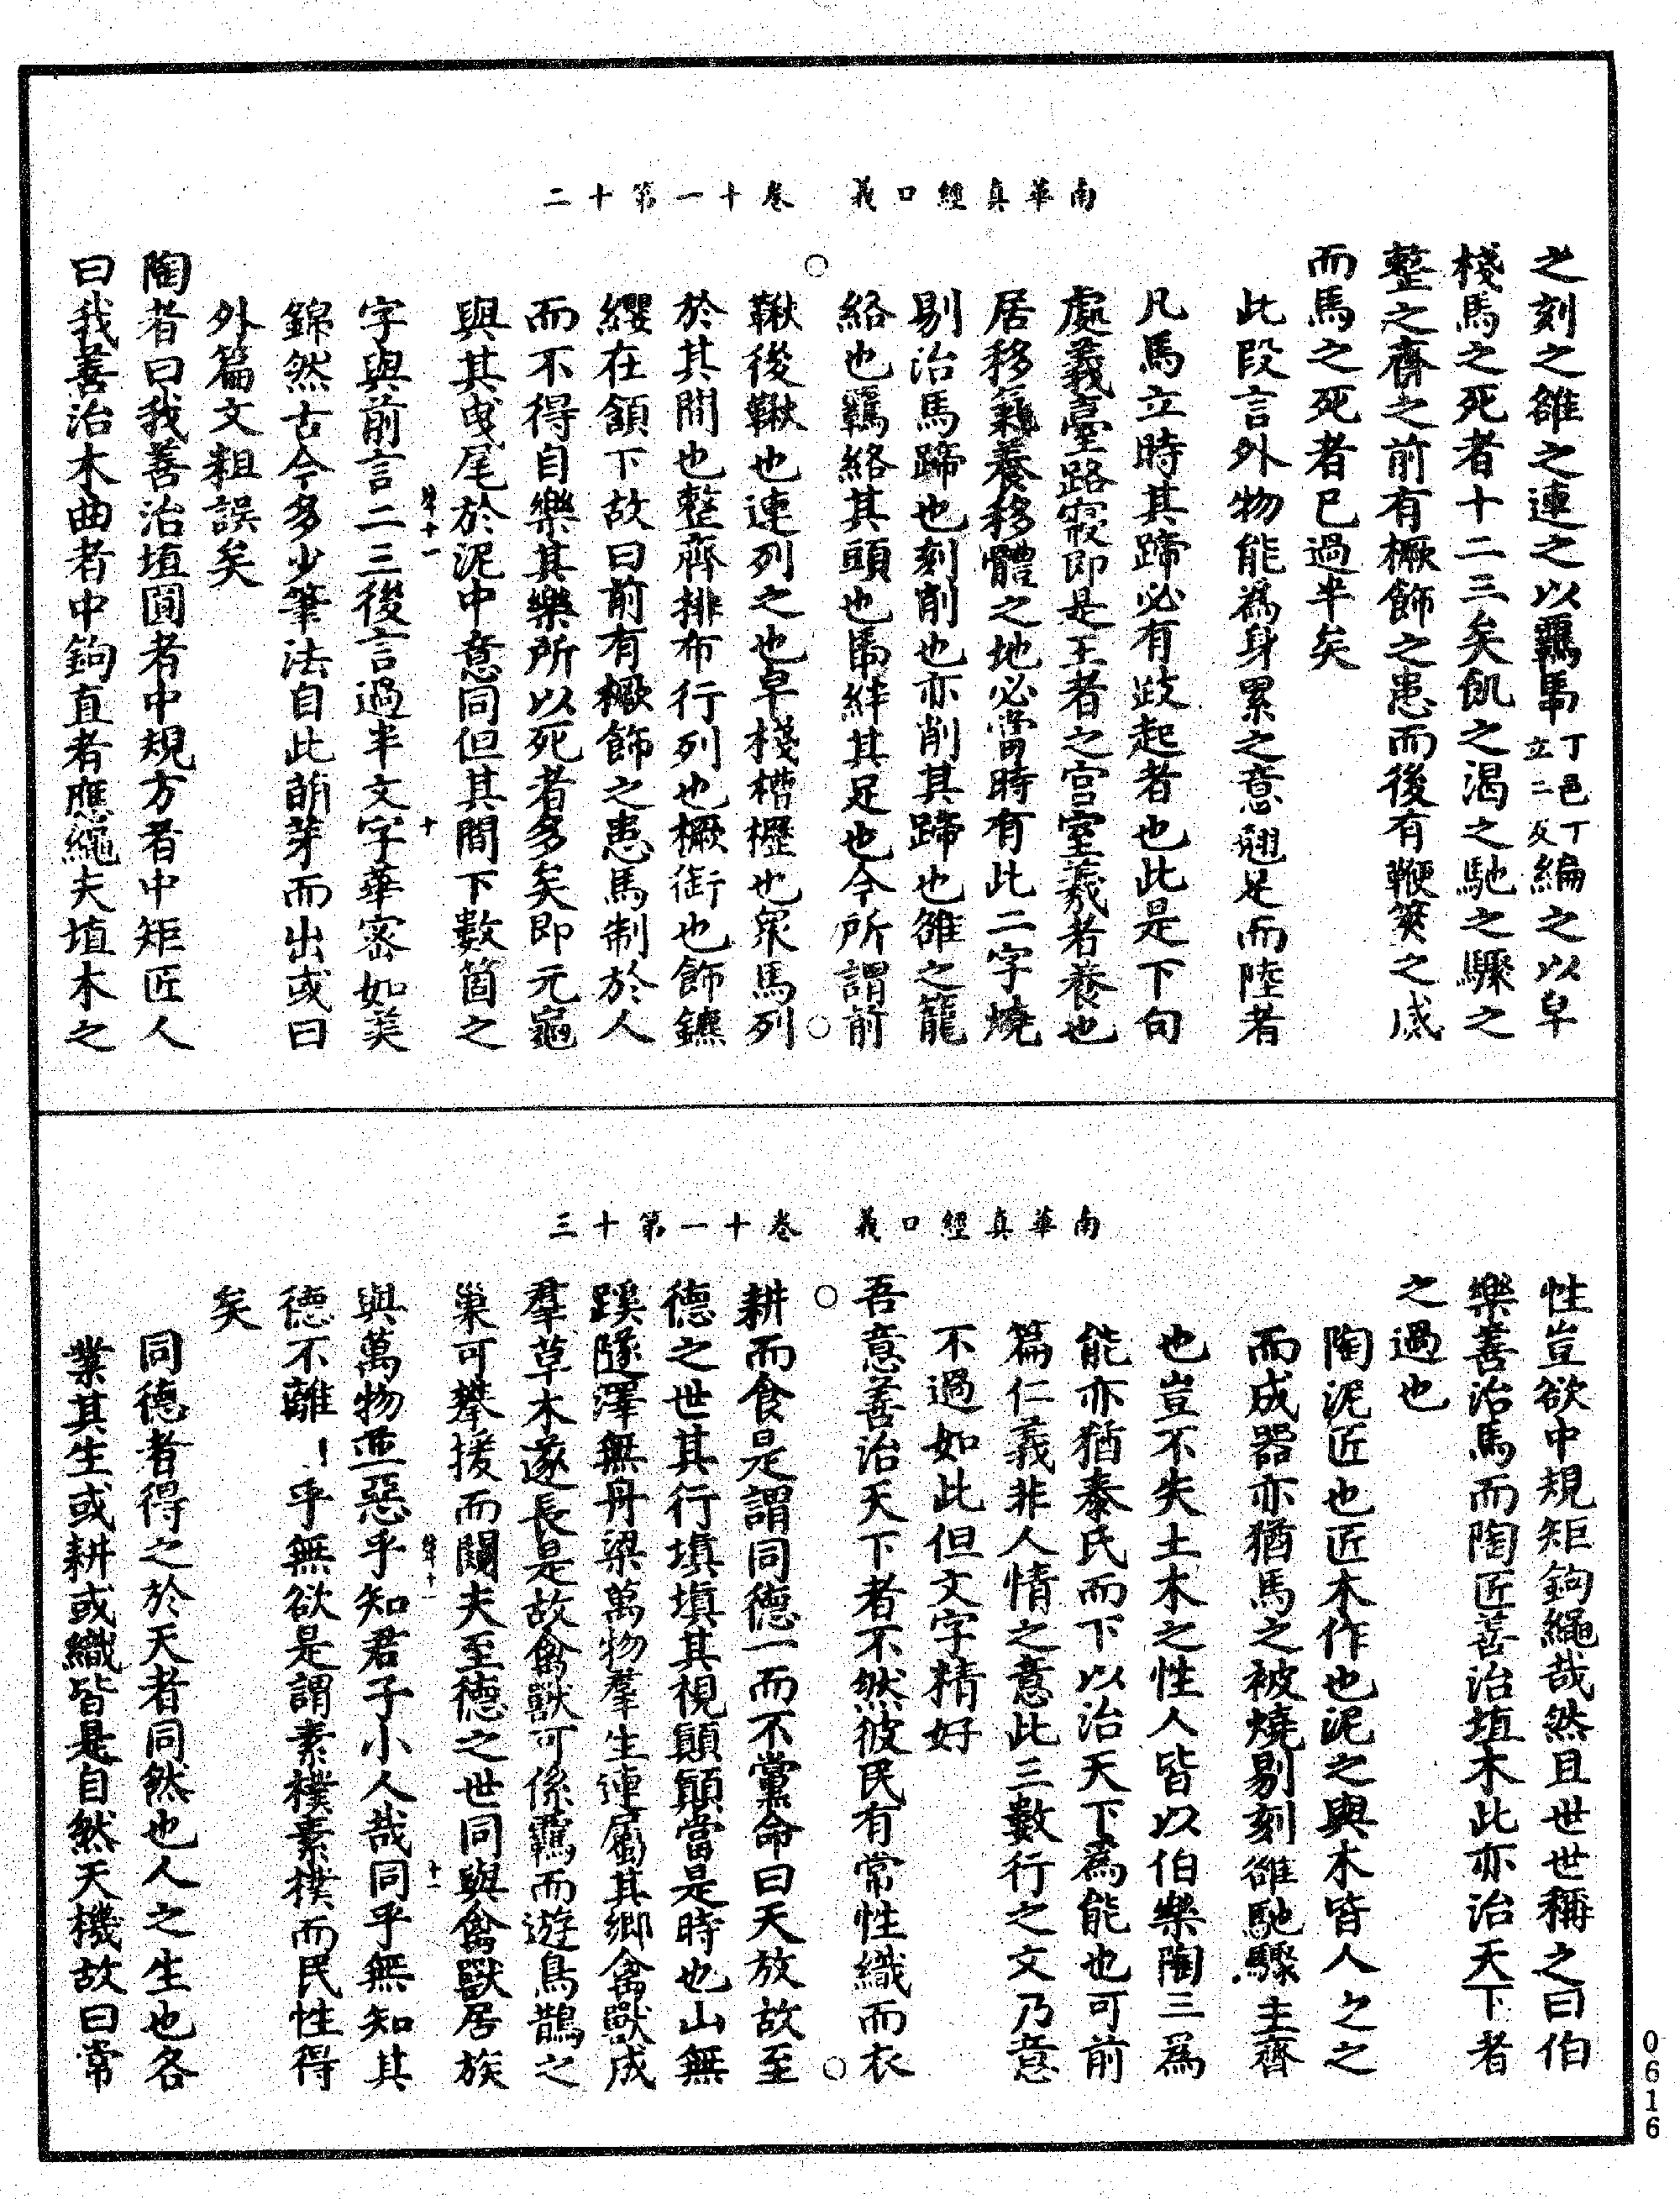 南華真經口義　卷十一第十二
之刻之雒之連之以羈馽丁邑丁立二反編之以皁
棧馬之死者十二三矣飢之渴之馳之驟之
整之齊之前有橛飾之患而後有鞭筴之威
而馬之死者已過半矣
此段言外物能為身累之意翹足而陸者
凡馬立時其蹄必有跂起者也此是下句
處義臺路寢即是王者之宮室義者養也
居移氣養移體之地必當時有此二字燒
剔治馬蹄也刻削也亦削其蹄也雒之籠
絡也羈絡其頭也馽絆其足也今所謂前
鞦後鞦也連列之也皁棧槽櫪也眾馬列
於其間也整齊排布行列也橛銜也飾鑣
纓在頷下故曰前有橛飾之患馬制於人
而不得自樂其樂所以死者多矣即元龜
與其曳尾於泥中意同但其間下數箇之
字與前言二三後言過半文字華密如美
錦然古今多少筆法自此萌芽而出或曰
外篇文粗誤矣
陶者曰我善治埴圓者中規方者中矩匠人
曰我善治木曲者中鉤直者應繩夫埴木之
南華真經口義　卷十一第十三
性豈欲中規矩鉤繩哉然且世世稱之曰伯
樂善治馬而陶匠善治埴木此亦治天下者
之過也
陶泥匠也匠木作也泥之與木皆人之之
而成器亦猶馬之被燒剔刻雒馳驟主齊
也豈不失土木之性人皆以伯樂陶三為
能亦猶泰氏而下以治天下為能也可前
篇仁義非人情之意此三數行之文乃意
不過如此但文字精好
吾意善治天下者不然彼民有常性織而衣
耕而食是謂同德一而不黨命曰天放故至
德之世其行填填其視顛顛當是時也山無
蹊隧澤無舟梁萬物羣生連屬其鄉禽獸成
羣草木遂長是故禽獸可係羈而遊鳥鵲之
巢可攀援而闚夫至德之世同與禽獸居族
與萬物並惡乎知君子小人哉同乎無知其
德不離！乎無欲是謂素樸素樸而民性得
矣
同德者得之於天者同然也人之生也各
業其生或耕或織皆是自然天機故曰常
0616